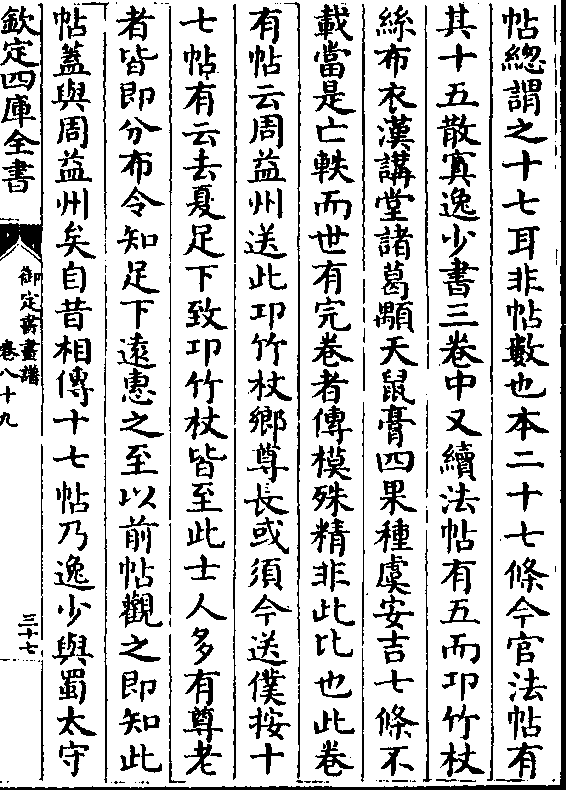 帖總謂之十七耳非帖數也本二十七條今官法帖有
其十五散寘逸少書三卷中又續法帖有五而卭竹杖
絲布衣漢講堂諸葛顒天䑕膏四果種虞安吉七條不
載當是亡軼而世有完卷者傳模殊精非此比也此卷
有帖云周益州送此卭竹杖鄉尊長或須今送僕按十
七帖有云去夏足下致卭竹杖皆至此士人多有尊老
者皆即分布令知足下逺恵之至以前帖觀之即知此
帖蓋與周益州矣自昔相傳十七帖乃逸少與蜀太守
欽定四庫全書
御定書畫譜
卷八十九
三十七